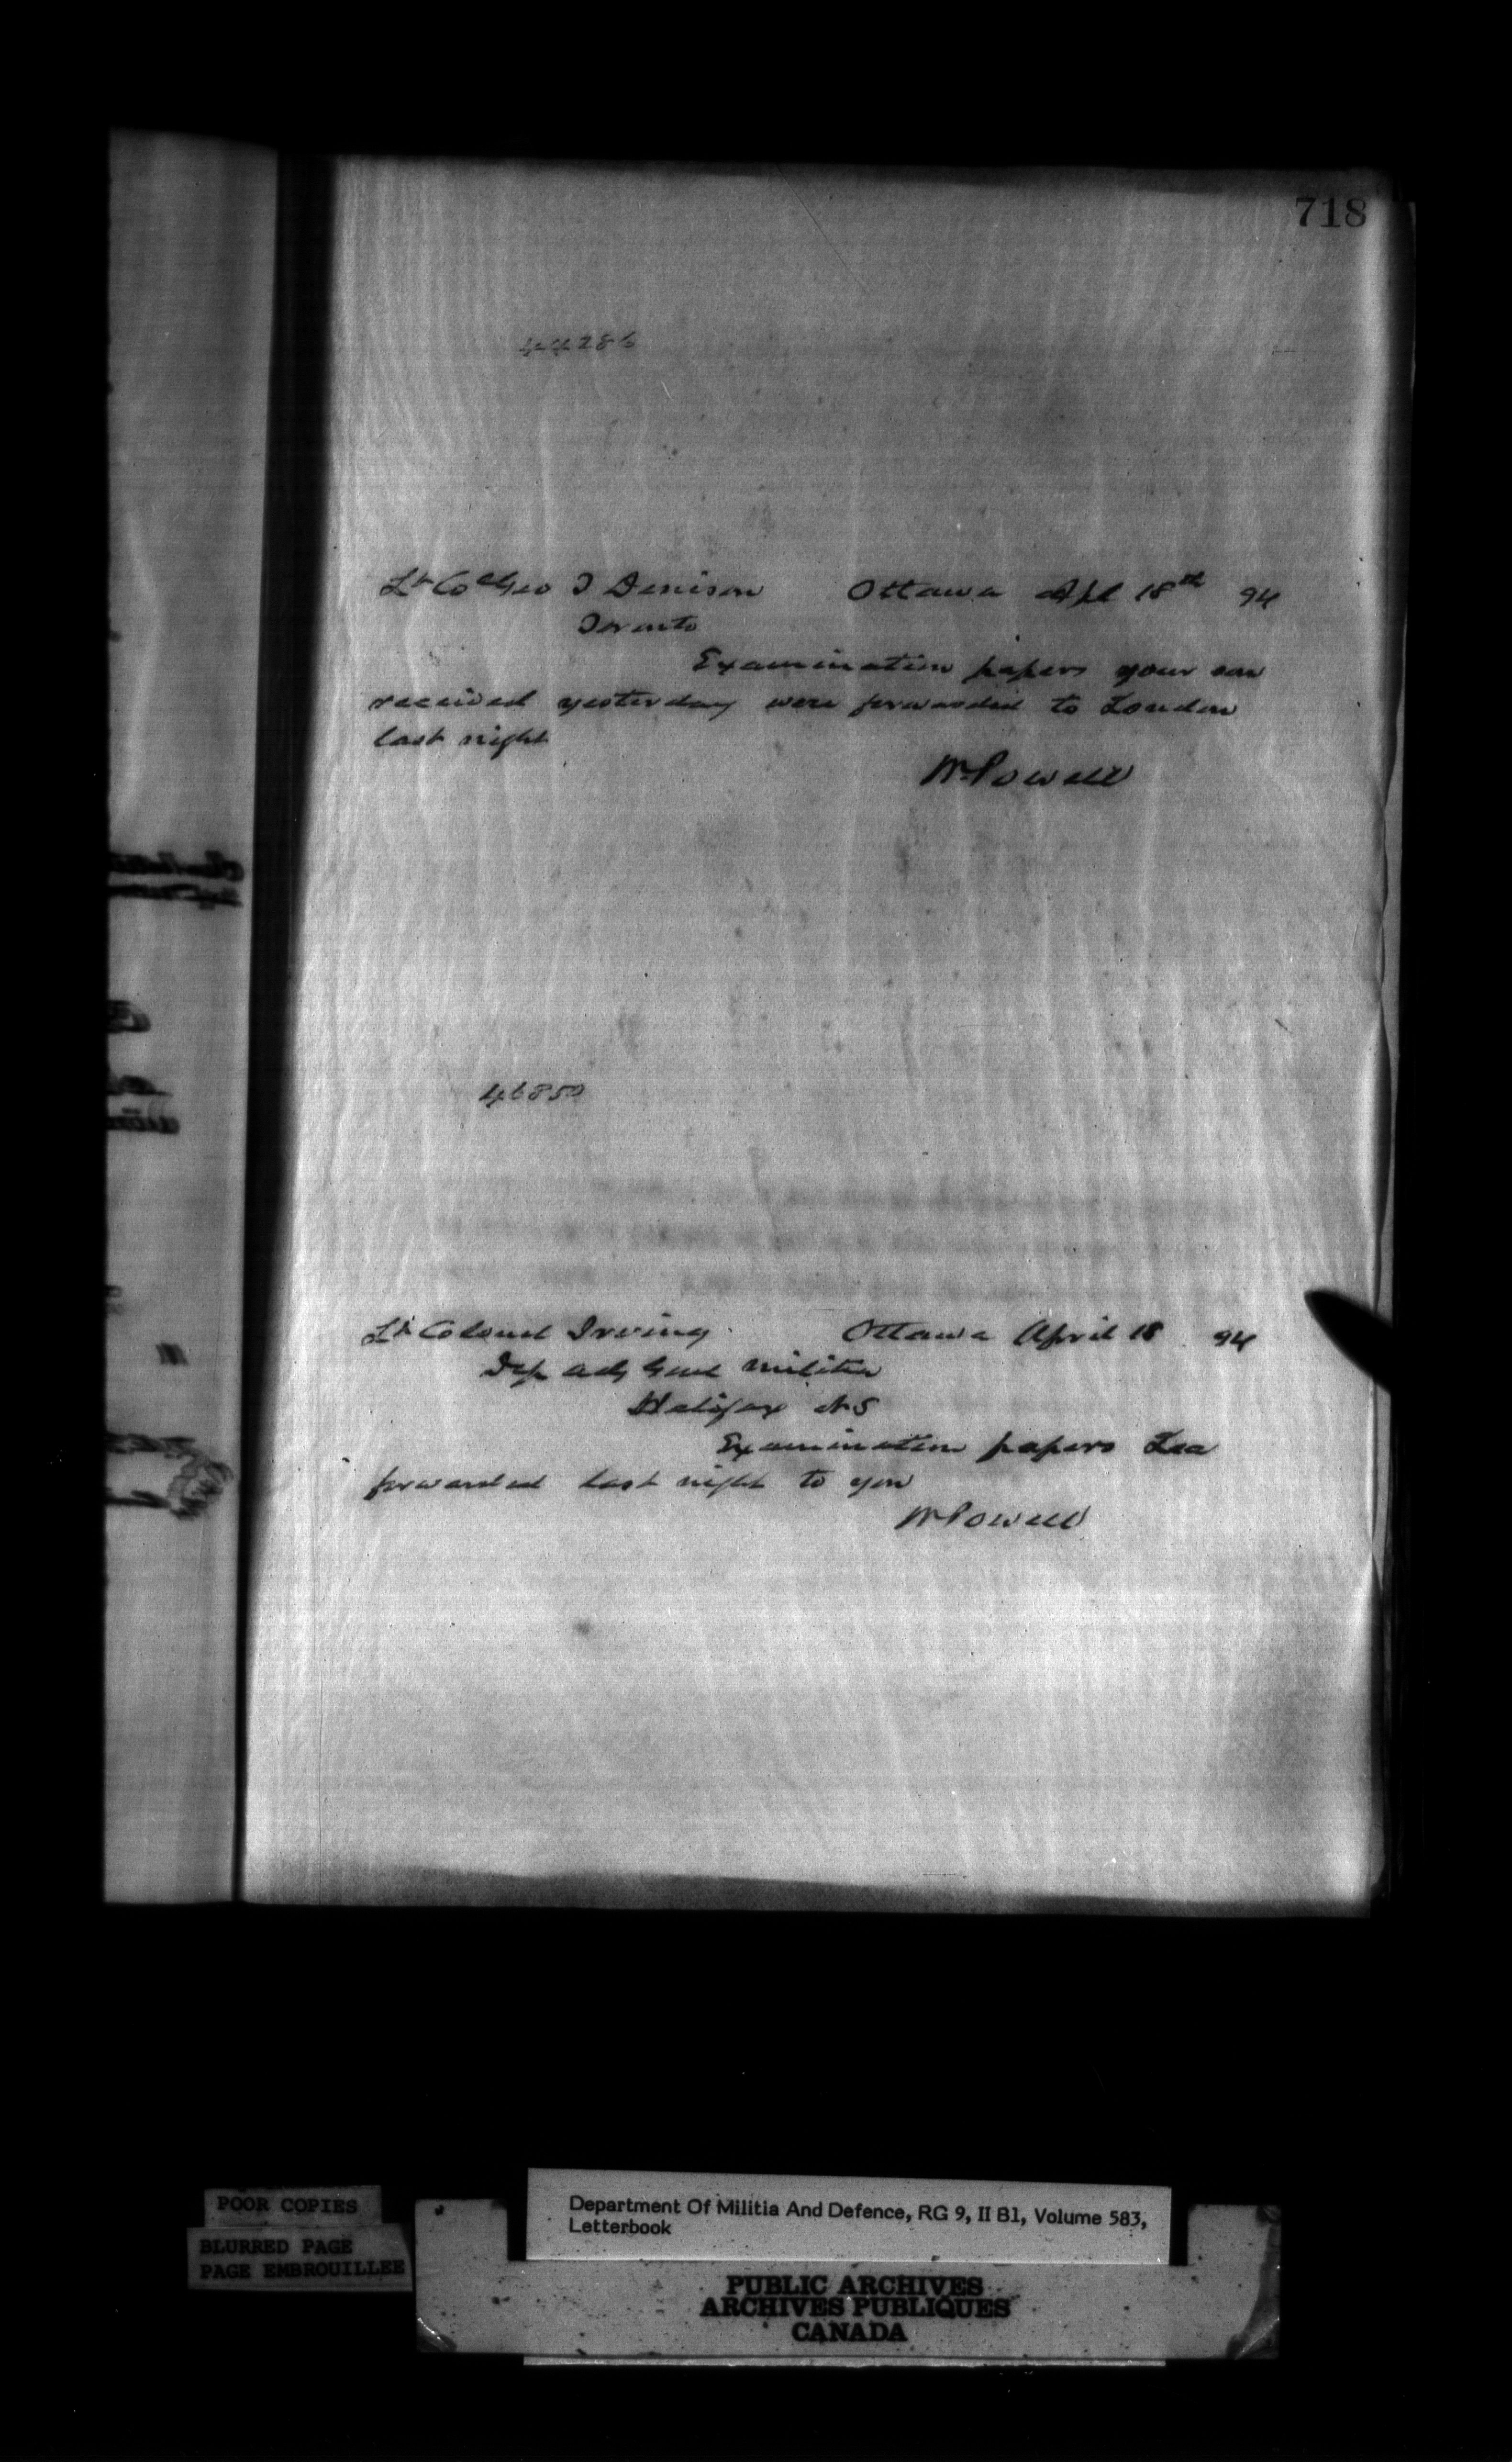 718
44286
Lt Col Geo T Denison Ottawa Apl 18th 94
Toronto
Examination papers your son
received yesterday were forwarded to London
last night
W Powell
46850
Lt Colonel Irving Ottawa April 18 94
Dep Adj Genl Militia
Halifax NS
Examination papers Lea
forwarded last night to you
W Powell
POOR COPIES
BLURRED PAGE
PAGE EMBROUILLEE
Department Of Militia And Defence, RG 9, II B1, Volume 583,
Letterbook
PUBLIC ARCHIVES
ARCHIVES PUBLIQUES
CANADA